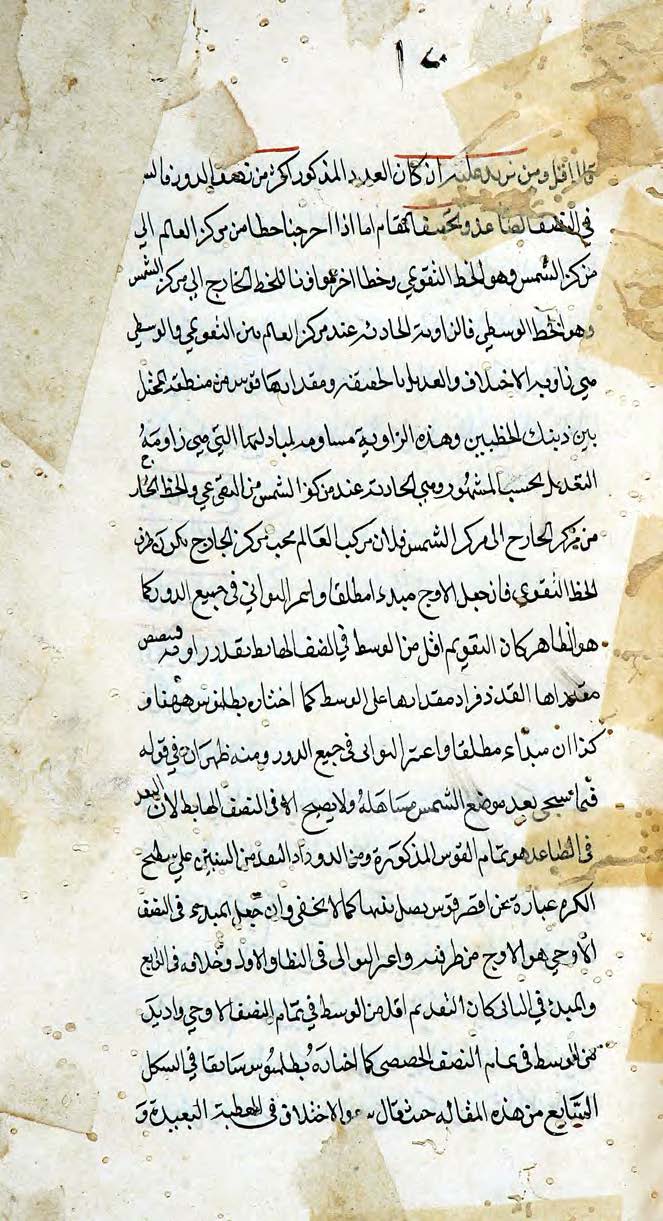 فالا اقل ومن نريد عليه ان كان العدد المذكور اكثر من نصف الدور فالشمس
في النصف الصاعد وتحقيق المقام اما اذا اخرجنا خطا من مركز العالم الى
مركز الشمس وهو الخط التقويمي وخطا اخر موازيا للخط الخارج الى مركز الشمس
وهو الخط الوسطي فالزاوية الحادثة عند مركز العالم بين التقويمي والوسطي
هي زاوية الاختلاف والتعديل بالحقيقة ومقدارها قوس من منطقة الممثل
بين ذينك الخطين وهذه الزاوية مساوية لمبادلتها التي هي زاوية
التعديل بحسب المشهور وهي الحادثة عند مركز الشمس من التقويمي والخط الخارج
من مركز الخارج الى مركز الشمس فلان مركب العالم تحت مركز الخارج يكون طرف
الخط التقويمي فان جعل الاوج مبدءا مطلقا واسم التوالي في جميع الدور كما
هو الظاهر كان التقويم اقل من الوسط في النصف الهابط بقدر زاوية
مقدارها القدر فزاد مقدارها على الوسط كما اختاره بطلميوس ههنا و
كذا ان مبداء مطلقا واعتبر التوالي في جميع الدور ومنه ظهر ان في قوله
فيما سيجئ بعد موضع الشمس مساهلة ولا يصح الا في النصف الهابط لان البعد
في الصاعد هو تمام القوس المذكورة ومن الدور اذ البعد من الشيئين على سطح
الكرة عبارة عن اقصر قوس يصل بينهما كما لا يخفى وان جعل المبدء في النصف
الاوجي هو الاوج من طرفيه واعتبر التوالي في النطاق الاول وخلافه في الرابع
والمبدء في الثاني كان التقويم اقل من الوسط في تمام النصف الاوجي وازيد
من الوسط في تمام النصف الحضيضي كما اختاره بطلميوس سابقا في الشكل
السابع من هذه المقالة حيث قال والاختلاف في القطعة البعيدة و